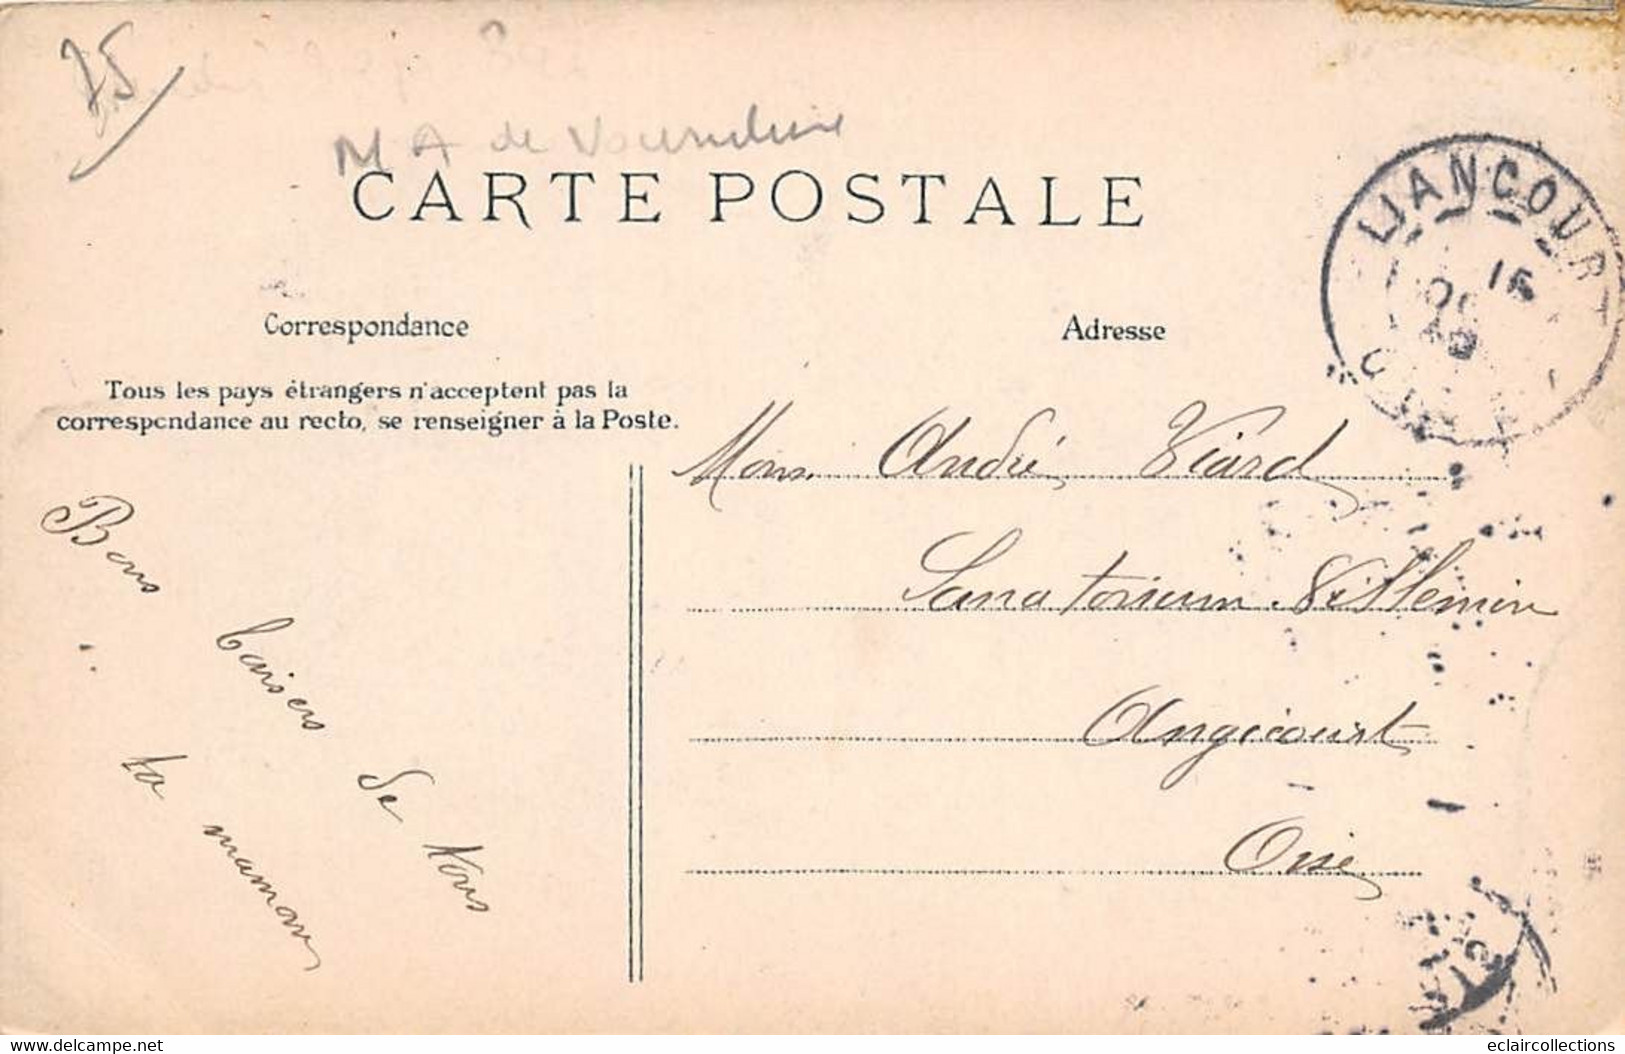 75
M A de
CARTE POSTALE
LIANCOURT
15
OISE
Correspondance
Adresse
Tous les pays étrangers n'acceptent pas la
correspondance au recto, se renseigner à la Poste.
Mons. André Viard
Sanatorium Villemin
Angicourt
Oise
Bons baisers de tous
ta maman
www.delcampe.net
eclaircollections